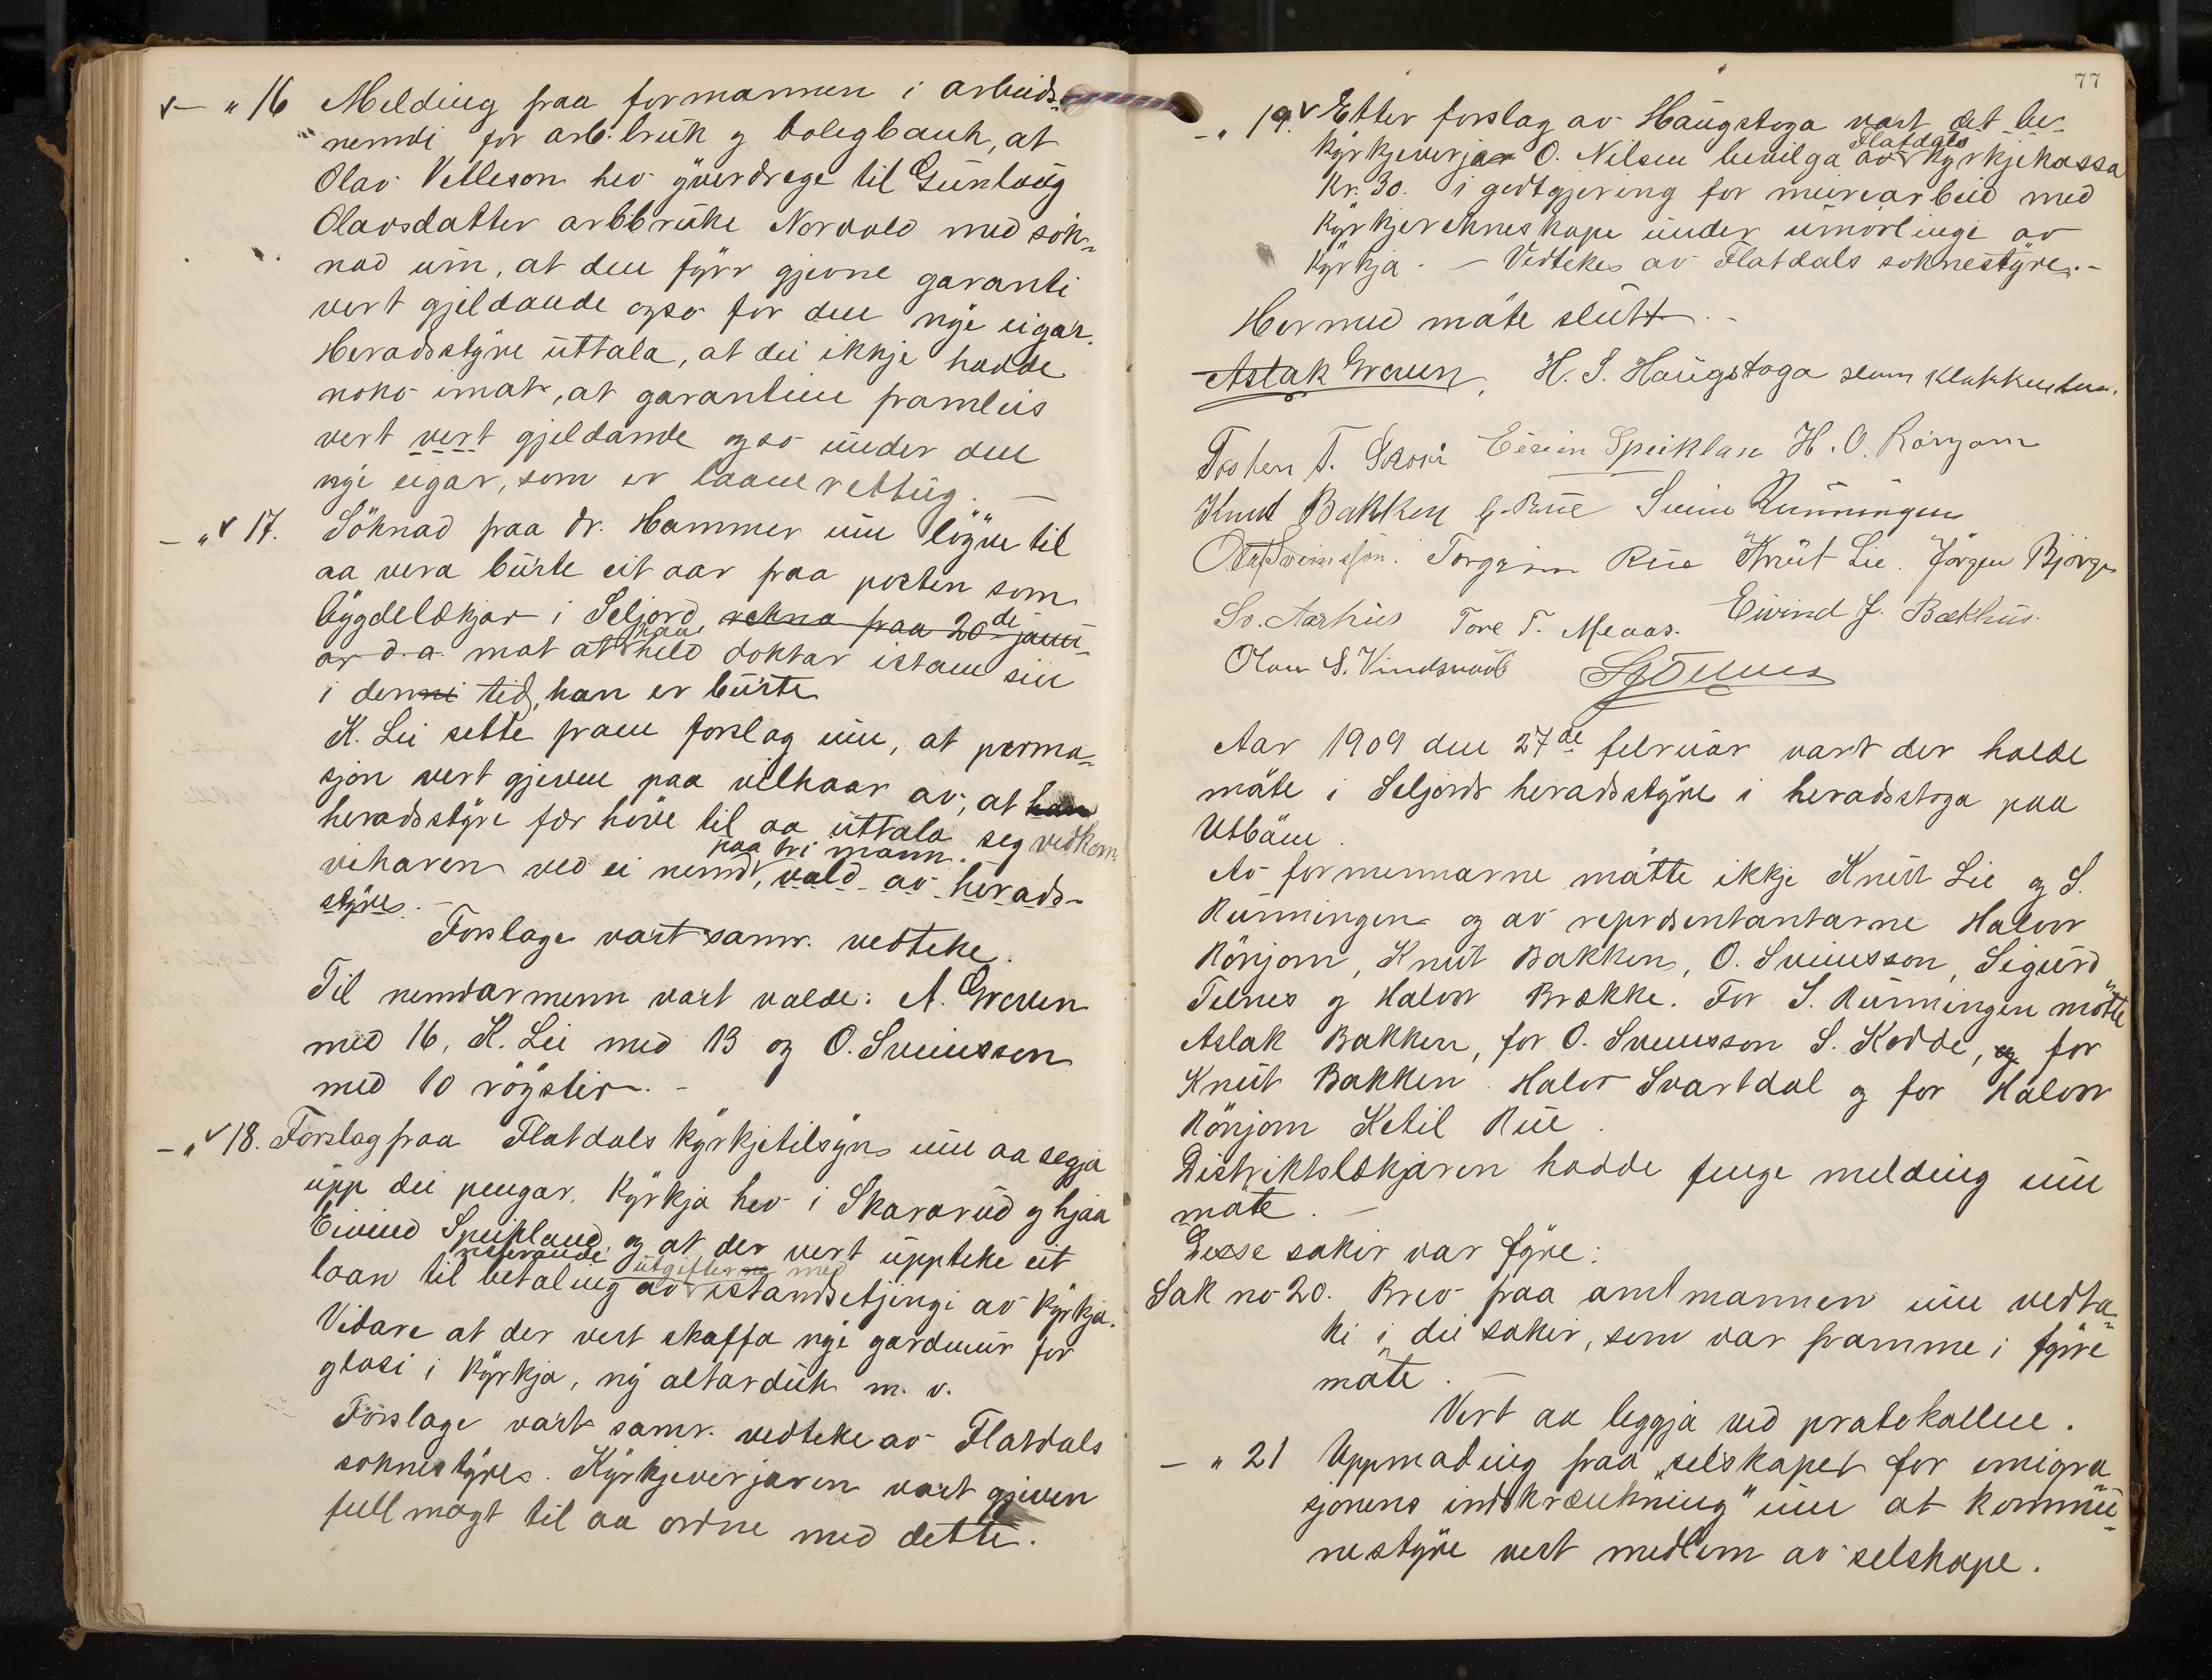 — " 16 Melding fraa formannen i arbeids-
nemdi for arb.bruk og bolegbank, at
Olav Vetleson hev yverdrege til Gunlaug
Olavsdatter arbbruke Norvold med søk-
nad um, at den fyrr gjevne garanti
vert gjeldande ogso for den nye eigar.
Heradsstyre uttala, at dei ikkje hadde
noko imot, at garantien framleis
vert vert gjeldande ogso under den
nye eigar, som er laanerettug. —
— " 17. Söknad fraa dr. Hammer um løyve til
aa vera burte eit aar fraa posten som
bygdelækjar i Seljord, rekna fraa 20de janu-
ar d.a. mot at han held doktar istaden sin
i denni tid, han er burte
K. Lie sette fram forslag um, at perma-
sjon vert gjeven paa vilkaar av, at han
heradsstyre fær höve til aa uttala seg vedkom.
vikaren ved ei nemd paa tri mann, vald av herads-
styre. –
Forslage vart samr. vedteke.
Til nemdarmenn vart valde: A. Greven
med 16, K. Lie med 13 og O. Sveinsson
med 10 røyster. –
— " 18. Forslag fraa Flatdals kyrkjetilsyn um aa segja
upp dei pengar, kyrkja hev i Skararud og hjaa
Eivind Speikland og at der vert uppteke eit
laan til betaling av resterande utgifterne med istandsetjingi av kyrkja.
Vidare at der vert skaffa nye gardinur for
glasi i kyrkja, ny altarduk m. v.
Forslage vart samr. vedteke av Flatdals
soknestyre. Kyrkjeverjaren vart gjeven
fullmagt til aa ordne med dette.
77
— " 19. Etter forslag av Haugstoga vart det be-
kyrkjeverja O. Nilsen bevilga av Flatdals kyrkjekassa
Kr. 30. i godtgjering for meirarbeid med
kyrkjerekneskape under umvølinge av
kyrkja. – Vedtekes av Flatdals soknestyre. –
Hermed møte slutt. –
Aslak Greven, H. S. Haugstoga
Tosten T. Skori Eivin Speiklan H. O. Rönjom
Knut Bakken G. Rue Svein Rünningen
Olaf Sveinsson. Torgrim Rue Knut Lie. Jörgen Bjørge
Sv. Aarhus Tore T. Meaas. Eivind J. Bækhus.
Olav S. Vindsvaal
Aar 1909 den 27de februar vart der halde
møte i Seljords heradsstyre i heradsstoga paa
Utbøen.
Av formennarne møtte ikkje Knut Lie og S.
Rünningen og av repræsentantarne Halvor
Rönjom, Knut Bakken, O. Sveinsson, Sigurd
Telnes og Halvor Brække. For S. Rünningen møtte
Aslak Bakken, for O. Sveinsson S. Kodde, og for
Knut Bakken Halvor Svartdal og for Halvor
Rönjom Ketil Rue.
Distriktslækjaren hadde fenge melding um
møte. —
Desse saker var fyre:
Sak no 20. Brev fraa amtmannen um vedta-
ki i dei saker, som var framme i fyrre
møte. —
Vert aa leggja ved protokollen.
— " 21 Uppmoding fraa "selskapet for emigra-
sjonens indskrænkning" um at kommu-
nestyre vert medlem av selskape.